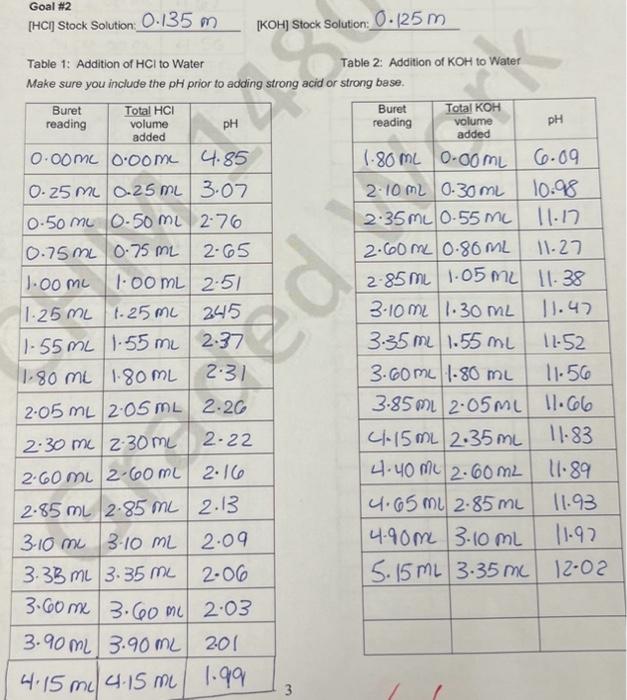 Goal #2
[HCl] Stock Solution: 0.135 m [KOH] Stock Solution: 0.125 m
Table 1: Addition of HCl to Water Table 2: Addition of KOH to Water
Make sure you include the pH prior to adding strong acid or strong base.
Buret reading Total HCl volume added pH
0.00 mL 0.00 mL 4.85
0.25 mL 0.25 mL 3.07
0.50 mL 0.50 mL 2.76
0.75 mL 0.75 mL 2.65
1.00 mL 1.00 mL 2.51
1.25 mL 1.25 mL 2.45
1.55 mL 1.55 mL 2.37
1.80 mL 1.80 mL 2.31
2.05 mL 2.05 mL 2.26
2.30 mL 2.30 mL 2.22
2.60 mL 2.60 mL 2.16
2.85 mL 2.85 mL 2.13
3.10 mL 3.10 mL 2.09
3.35 mL 3.35 mL 2.06
3.60 mL 3.60 mL 2.03
3.90 mL 3.90 mL 2.01
4.15 mL 4.15 mL 1.99
Buret reading Total KOH volume added pH
1.80 mL 0.00 mL 6.09
2.10 mL 0.30 mL 10.98
2.35 mL 0.55 mL 11.17
2.60 mL 0.80 mL 11.27
2.85 mL 1.05 mL 11.38
3.10 mL 1.30 mL 11.47
3.35 mL 1.55 mL 11.52
3.60 mL 1.80 mL 11.56
3.85 mL 2.05 mL 11.66
4.15 mL 2.35 mL 11.83
4.40 mL 2.60 mL 11.89
4.65 mL 2.85 mL 11.93
4.90 mL 3.10 mL 11.97
5.15 mL 3.35 mL 12.02
3
CHM 1480
Graded Work